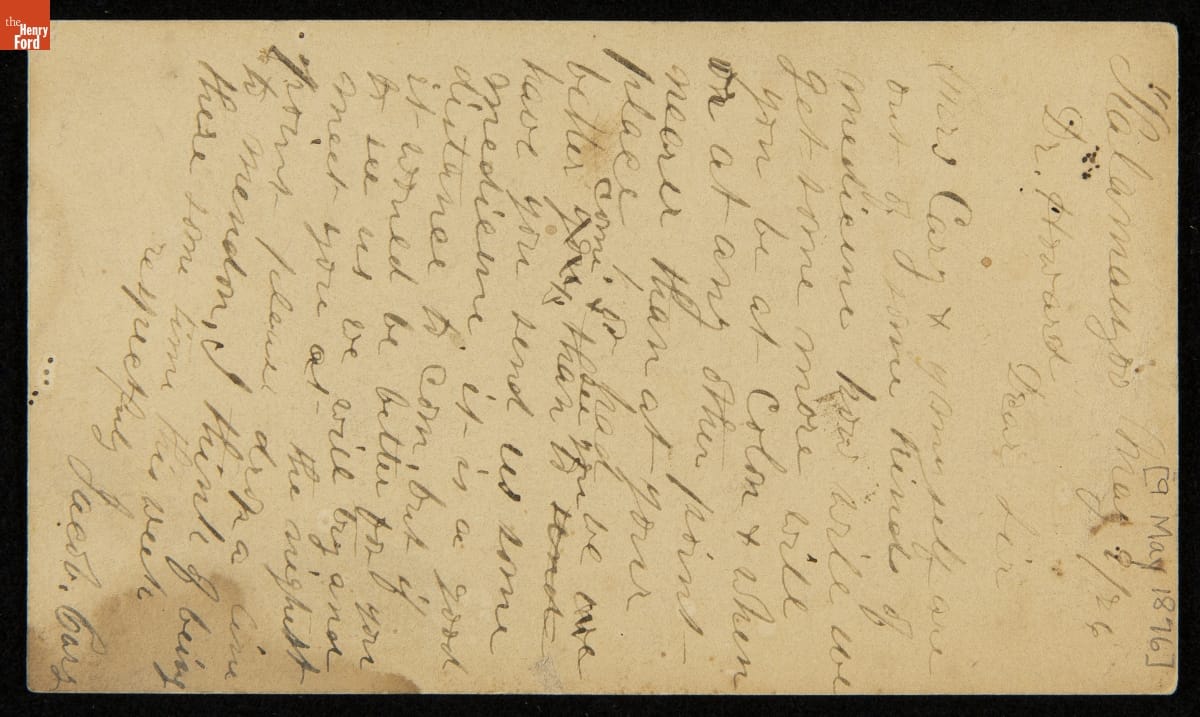 the
Henry
Ford
Kalamazoo May 9/96
[9 May 1896]
Dr. Howard
Dear Sir
Mrs Cary & yourself are
out of some kinds of
medicine how will we
get some more will
you be at Colon & when
or at any other point
nearer than at your
place
come, so had
better you than to send
have you send us some
medicine it is a good
distance to com but if
it would be better for you
to see us we will try and
meet you at the nighest
point please drop a line
to mendon, I think of being
there some time this week
respectfuly
Jacob. Cary